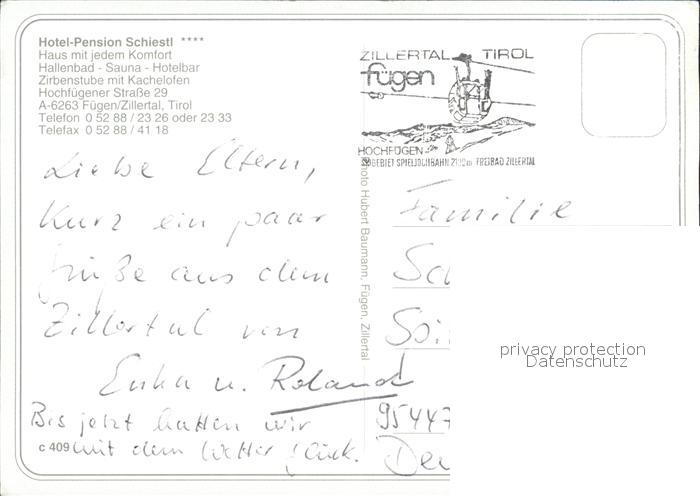 Hotel-Pension Schiestl ****
Haus mit jedem Komfort
Hallenbad - Sauna - Hotelbar
Zirbenstube mit Kachelofen
Hochfügener Straße 29
A-6263 Fügen/Zillertal, Tirol
Telefon 0 52 88 / 23 26 oder 23 33
Telefax 0 52 88 / 41 18
ZILLERTAL TIROL
fügen
HOCHFÜGEN
SKIGEBIET SPIELJOCHBAHN 2100m FREIBAD ZILLERTAL
Liebe Eltern,
Kurz ein paar
Grüße aus dem
Zillertal von
Erika u. Roland
Bis jetzt hatten wir
mit dem Wetter Glück.
c 409
Photo Hubert Baumann, Fügen, Zillertal
Familie
95447
privacy protection
Datenschutz